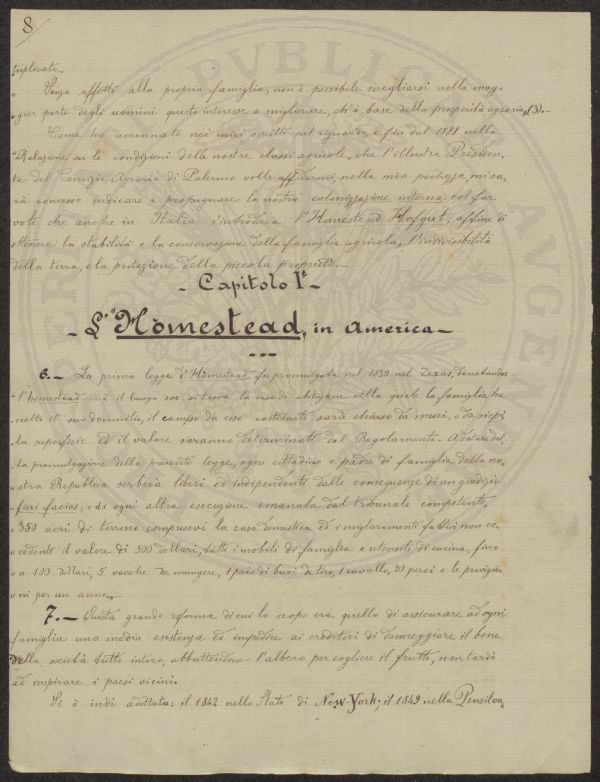 8
triplicato.„
„ Senza affetto alla propria famiglia, non è possibile svegliarsi nella mag-
gior parte degli uomini questo interesse a migliorare, ch'è base della prosperità agraria„ (3).—
Come ho accennato nei miei scritti sul riguardo, e fin dal 1888 nella
"Relazione su le condizioni delle nostre classi agricole, che l'illustre Presiden-
te del Comizio Agrario di Palermo volle affidarmi, nella mia pochezza, mi sa-
rà concesso indicare e propugnare la nostra colonizzazione interna col far
voti che anche in Italia s'introduca l'Homestead Hofgut, affine di
ottenere la stabilità e la conservazione della famiglia agricola, l'indivisibilità
della terra, e la protezione della piccola proprietà.—
- Capitolo I° -
- L'"Homestead„ in America -
6.— La prima legge d'Homestead fu promulgata nel 1839 nel Texas, denotandosi
"l'homestead... è il luogo ove si trova la casa di abitazione nella quale la famiglia ha
"eletto il suo domicilio, il campo da esso costituito sarà chiuso da muri, o da siepi
"la superficie ed il valore saranno determinati dal Regolamento. A datare dal
"la promulgazione della presente legge, ogni cittadino e padre di famiglia della no-
"stra Republica serberà liberi ed indipendenti dalle conseguenze di un giudizio
"fieri facias, o di ogni altra esecuzione emanata dal tribunale competente,
"350 acri di terreno compresevi la casa domestica ed i miglioramenti fattivi non ec-
"cedente il valore di 500 dollari, tutti i mobili di famiglia e utensili di cucina, fino
"a 100 dollari, 5 vacche da mungere, 1 paio di buoi da tiro, 1 cavallo, 20 porci e le provigio-
"ni per un anno.„
7.— Questa grande riforma di cui lo scopo era quello di assicurare ad ogni
famiglia una media esistenza ed impedire ai creditori di danneggiare il bene
della società tutto intero, abbattendone l'albero per cogliere il frutto, non tardò
ad inspirare i paesi vicini.
Si è indi adottata: il 1842 nello Stato di New-York; il 1849 nella Pensilva-